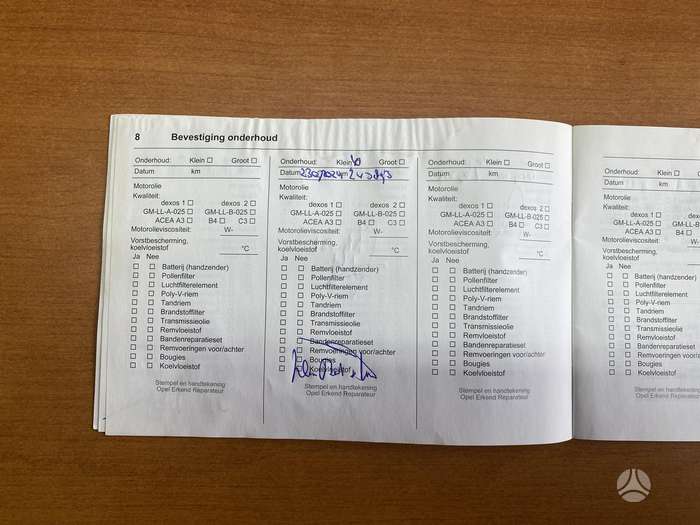 8 Bevestiging onderhoud
Onderhoud: Klein Groot
Datum km
Motorolie
Kwaliteit:
dexos 1 dexos 2
GM-LL-A-025 GM-LL-B-025
ACEA A3 B4 C3
Motorolieviscositeit: W-
Vorstbescherming,
koelvloeistof °C
Ja Nee
Batterij (handzender)
Pollenfilter
Luchtfilterelement
Poly-V-riem
Tandriem
Brandstoffilter
Transmissieolie
Remvloeistof
Bandenreparatieset
Remvoeringen voor/achter
Bougies
Koelvloeistof
Stempel en handtekening
Opel Erkend Reparateur
Onderhoud: Klein Groot
Datum km
Motorolie
Kwaliteit:
dexos 1 dexos 2
GM-LL-A-025 GM-LL-B-025
ACEA A3 B4 C3
Motorolieviscositeit: W-
Vorstbescherming,
koelvloeistof °C
Ja Nee
Batterij (handzender)
Pollenfilter
Luchtfilterelement
Poly-V-riem
Tandriem
Brandstoffilter
Transmissieolie
Remvloeistof
Bandenreparatieset
Remvoeringen voor/achter
Bougies
Koelvloeistof
Stempel en handtekening
Opel Erkend Reparateur
Onderhoud: Klein Groot
Datum km
Motorolie
Kwaliteit:
dexos 1 dexos 2
GM-LL-A-025 GM-LL-B-025
ACEA A3 B4 C3
Motorolieviscositeit: W-
Vorstbescherming,
koelvloeistof °C
Ja Nee
Batterij (handzender)
Pollenfilter
Luchtfilterelement
Poly-V-riem
Tandriem
Brandstoffilter
Transmissieolie
Remvloeistof
Bandenreparatieset
Remvoeringen voor/achter
Bougies
Koelvloeistof
Stempel en handtekening
Opel Erkend Reparateur
Onderhoud: Klein
Datum km
Motorolie
Kwaliteit:
dexos 1
GM-LL-A-025
ACEA A3
Motorolieviscositeit:
Vorstbescherming,
koelvloeistof
Ja Nee
Batterij (handzender)
Pollenfilter
Luchtfilterelement
Poly-V-riem
Tandriem
Brandstoffilter
Transmissieolie
Remvloeistof
Bandenreparatieset
Remvoeringen
Bougies
Koelvloeistof
Stempel en
Opel Erkend